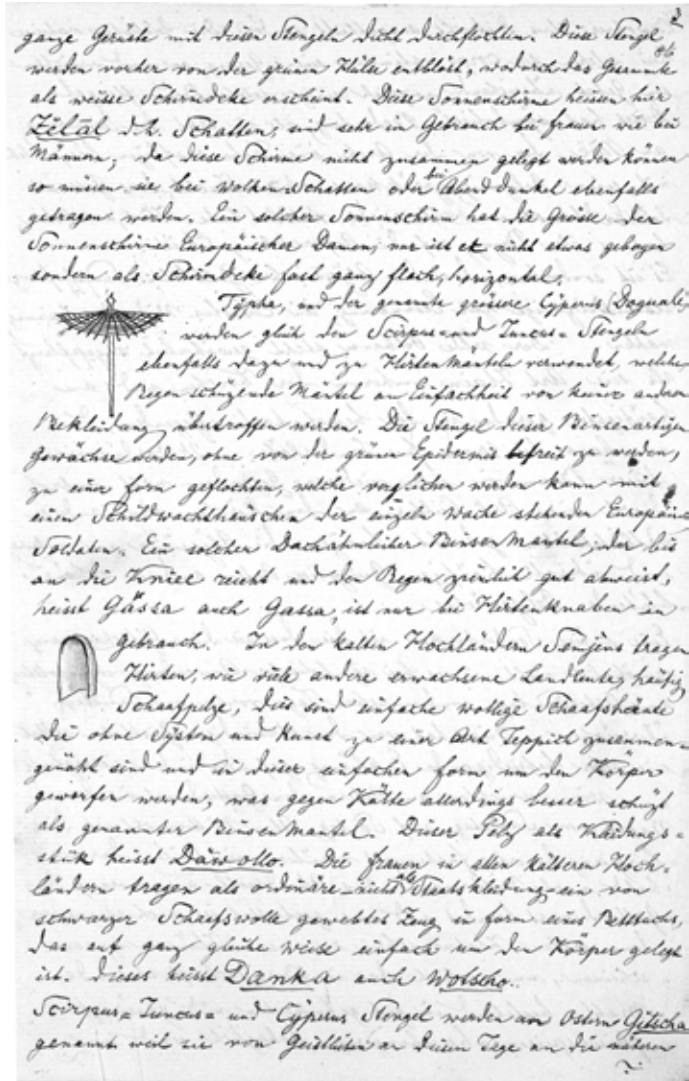 3
ganze Gerüste mit diesen Stengeln dicht durchflochten. Diese Stengel
werden vorher von der grünen Hülse entblöst, wodurch das
als weisse Schirmdecke erscheint. Diese Sonnenschirme heissen hier
Zĕlāl d.h. Schatten, sind sehr in Gebrauch bei Frauen wie bei
Männern; da diese Schirme nicht zusammen gelegt werden können
so müssen sie bei Wolken-Schatten oder bei Abend Dunkel ebenfalls
getragen werden. Ein solcher Sonnenschirm hat die Grösse der
Sonnenschirme Europäischer Damen, nur ist er nicht etwas gebogen
sondern als Schirmdecke fast ganz flach, horizontal.
Typha, und der genannte grössere Cyperus (Doguale)
werden gleich den Scirpus- und Juncus- Stengeln
ebenfalls dazu und zu Hirtenmänteln verwendet, welche
Regen schüzende Mäntel an Einfachheit von keiner andern
Bekleidung übertroffen werden. Die Stengel dieser Binsenartigen
Gewächse werden, ohne von der grünen Epidermis befreit zu werden,
zu einer Form geflochten, welche verglichen werden kann mit
einem Schildwachthäuschen der einzeln Wache stehenden Europäis-
Soldaten. Ein solcher Dachähnlicher Binsen Mantel, der bis
an die Kniee reicht und den Regen ziemlich gut abweist,
heisst Gāssa auch Gassa, ist nur bei Hirtenknaben in
Gebrauch. In den kalten Hochländern Semjens tragen
Hirten, wie viele andere erwachsene Landleute, häufig
Schaafpelze, dies sind einfache wollige Schaafshäute
die ohne System und Kunst zu einer Art Teppich zusammen-
genäht sind und in dieser einfacher Form um den Körper
geworfen werden, was gegen Kälte allerdings besser schüzt
als genannter Binsenmantel. Dieser Pelz als Kleidungs-
stük heisst Däwollo. Die Frauen in allen kälteren Hoch-
ländern tragen als ordinäre - nicht als Staatskleidung - ein von
schwarzer Schaafswolle gewebtes Zeug in Form eines Betttuchs,
das auf ganz gleiche Weise einfach um den Körper gelegt
ist. Dieses heisst Danka auch Wotscho.
Scirpus- Juncus- und Cyperus Stengel werden an Ostern Gitscha
genannt weil sie von Geistlichen an diesem Tage an die